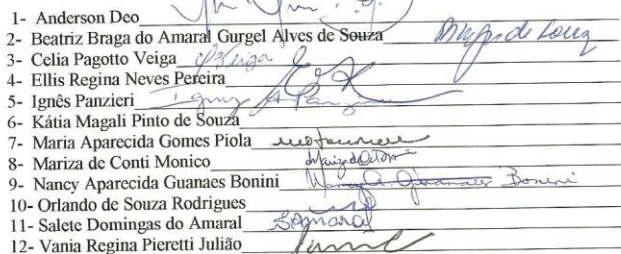 1- Anderson Deo
2- Beatriz Braga do Amaral Gurgel Alves de Souza
3- Celia Pagotto Veiga Veiga
4- Ellis Regina Neves Pereira
5- Ignês Panzieri
6- Kátia Magali Pinto de Souza
7- Maria Aparecida Gomes Piola
8- Mariza de Conti Monico
9- Nancy Aparecida Guanaes Bonini Nancy A. Guanaes Bonini
10- Orlando de Souza Rodrigues
11- Salete Domingas do Amaral SAmaral
12- Vania Regina Pieretti Julião